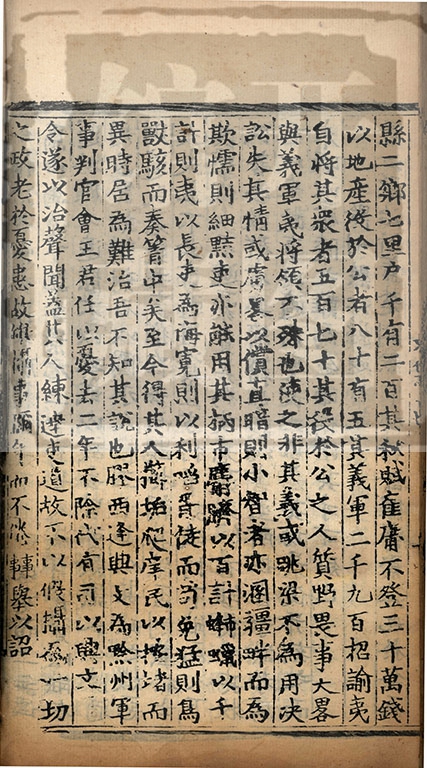 縣二鄉七里戶千有二百其秋賦雇庸不登三十萬錢
以地產役於公者八十有五其義軍二千九百招諭夷
自將其眾者五百七十其役於公之人質野畏事大畧
與義軍夷將領不殊也使之非其義或跳梁不為用决
訟失其情或虜暴以償直暗則小智者亦溷疆畔而為
欺懦則細黠吏亦能用其柄市麝臍以百計蜂蠟以千
計則夷以長吏為侮寬則以利啗胥徒而苟免猛則鳥
獸駭而奏箐中矣至今得其人爬民以按堵而
異時居為難治吾不知其說也膠西逢興文為黔州軍
事判官會王君任以憂去二年不除代有司以興文
令遂以治聲聞蓋其人練達吏道故不以假攝為一切
之政老於憂患故興攝事彌年而不倦轉舉以詔